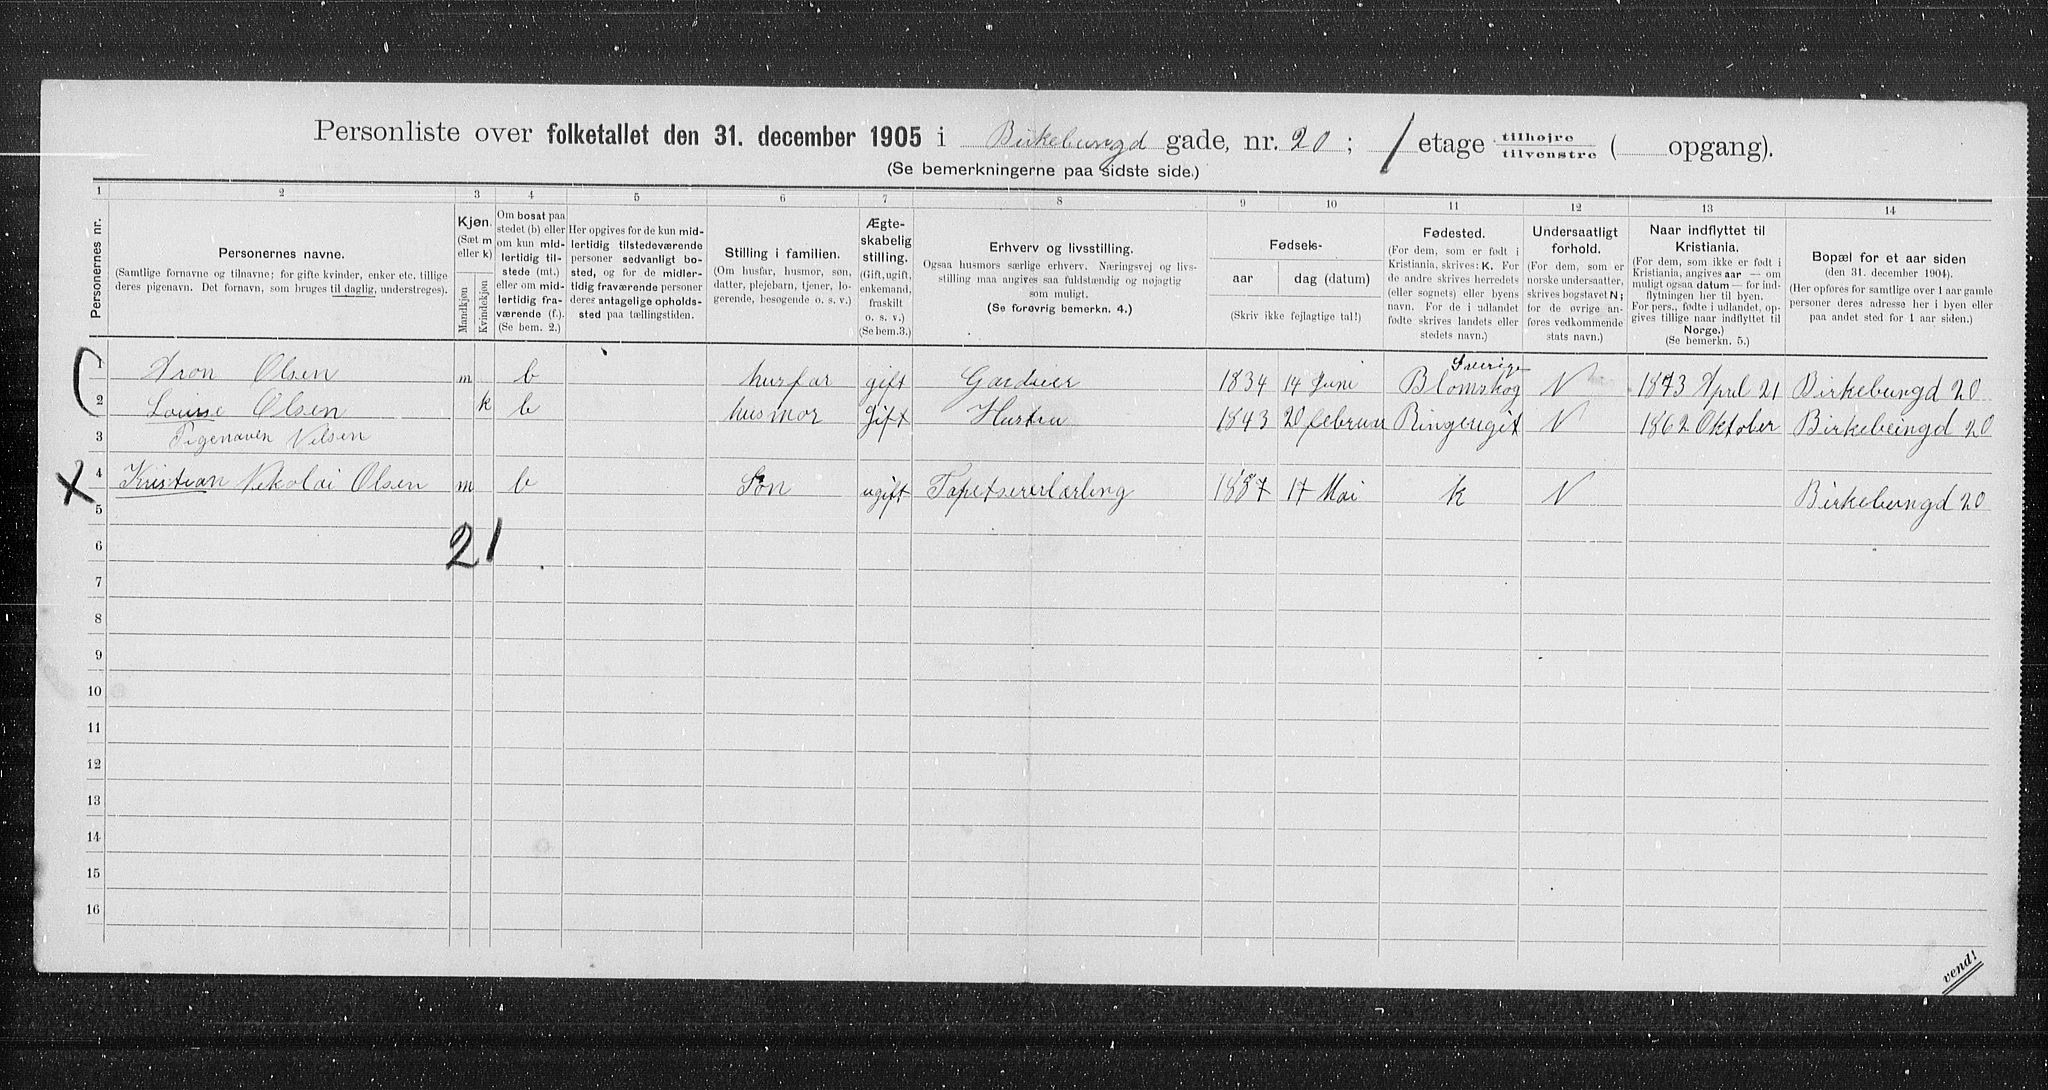 Personliste over folketallet den 31. december 1905 i Birkebungd gade, nr. 20; 1 etage tilhøjre tilvenstre ( opgang).
(Se bemerkningerne paa sidste side.)
1 2 3 4 5 6 7 8 9 10 11 12 13 14
Personernes nr.
Personernes navne.
(Samtlige fornavne og tilnavne; for gifte kvinder, enker etc. tillige
deres pigenavn. Det fornavn, som bruges til daglig, understreges).
Kjøn.
(Sæt m
eller k)
Mandkjøn
Kvindekjøn
Om bosat paa
stedet (b) eller
om kun mid-
lertidig til-
stede (mt.)
eller om mid-
lertidig fra-
værende (f.).
(Se bem. 2.)
Her opgives for de kun mid-
lertidig tilstedeværende
personer sedvanligt bo-
sted, og for de midler-
tidig fraværende personer
deres antagelige opholds-
sted paa tællingstiden.
Stilling i familien.
(Om husfar, husmor, søn,
datter, plejebarn, tjener, lo-
gerende, besøgende o. s. v.)
Ægte-
skabelig
stilling.
(Gift, ugift,
enkemand,
fraskilt
o. s. v.)
(Se bem.3.)
Erhverv og livsstilling.
Ogsaa husmors særlige erhverv. Næringsvej og livs-
stilling maa angives saa fuldstændig og nøjagtig
som muligt.
(Se forøvrig bemerkn. 4.)
Fødsels-
aar
dag (datum)
(Skriv ikke fejlagtige tal!)
Fødested.
(For dem, som er født i
Kristiania, skrives: K. For
de andre skrives herredets
(eller sognets) eller byens
navn. For de i udlandet
fødte skrives landets eller
stedets navn.)
Undersaatligt
forhold.
(For dem, som er
norske undersaatter,
skrives bogstavet N;
for de øvrige an-
føres vedkommende
stats navn.)
Naar indflyttet til
Kristiania.
(For dem, som ikke er født i
Kristiania, angives aar — om
muligt ogsaa datum — for ind-
flytningen her til byen.
For pers., fødte i udlandet, op-
gives tillige naar indflyttet til
Norge.)
(Se bemerkn. 5.)
Bopæl for et aar siden
(den 31. december 1904).
(Her opføres for samtlige over 1 aar gamle
personer deres adresse her i byen eller
paa andet sted for 1 aar siden.)
Sverige
1 Aron Olsen m b husfar gift Gardeier 1834 14 Juni Blomskog N 1873 April 21 Birkebungd 20
2 Louise Olsen k b husmor gift Hustru 1843 20 februar Ringeriget N 1862 Oktober Birkebeingd 20
3 Pigenaven Nilsen
4 Kristian Nikolai Olsen m b Søn ugift Tapetsererlærling 1887 17 Mai k N Birkebungd 20
5
21
6
7
8
9
10
11
12
13
14
15
16
vend!